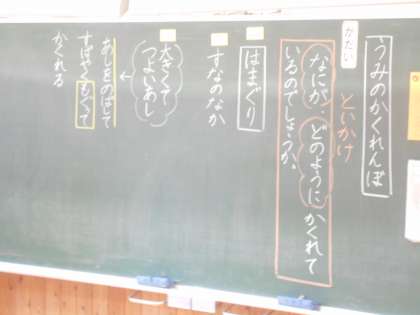 うみのかくれんぼ
かだい
といかけ
なにが、どのようにかくれて
いるのでしょうか。
はまぐり
すなのなか
大きくて
つよいあし
↓
あしをのばして
すばやくもぐって
かくれる